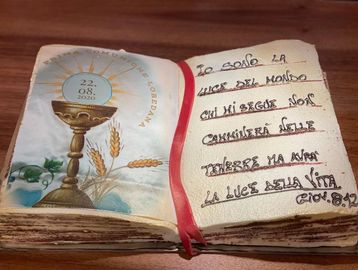 PRIMA COMUNIONE LOREDANA
22.
08.
2020
IO SONO LA
LUCE DEL MONDO
CHI MI SEGUE NON
CAMMINERÀ NELLE
TENEBRE MA AVRÀ
LA LUCE DELLA VITA
GIOV. 8.12